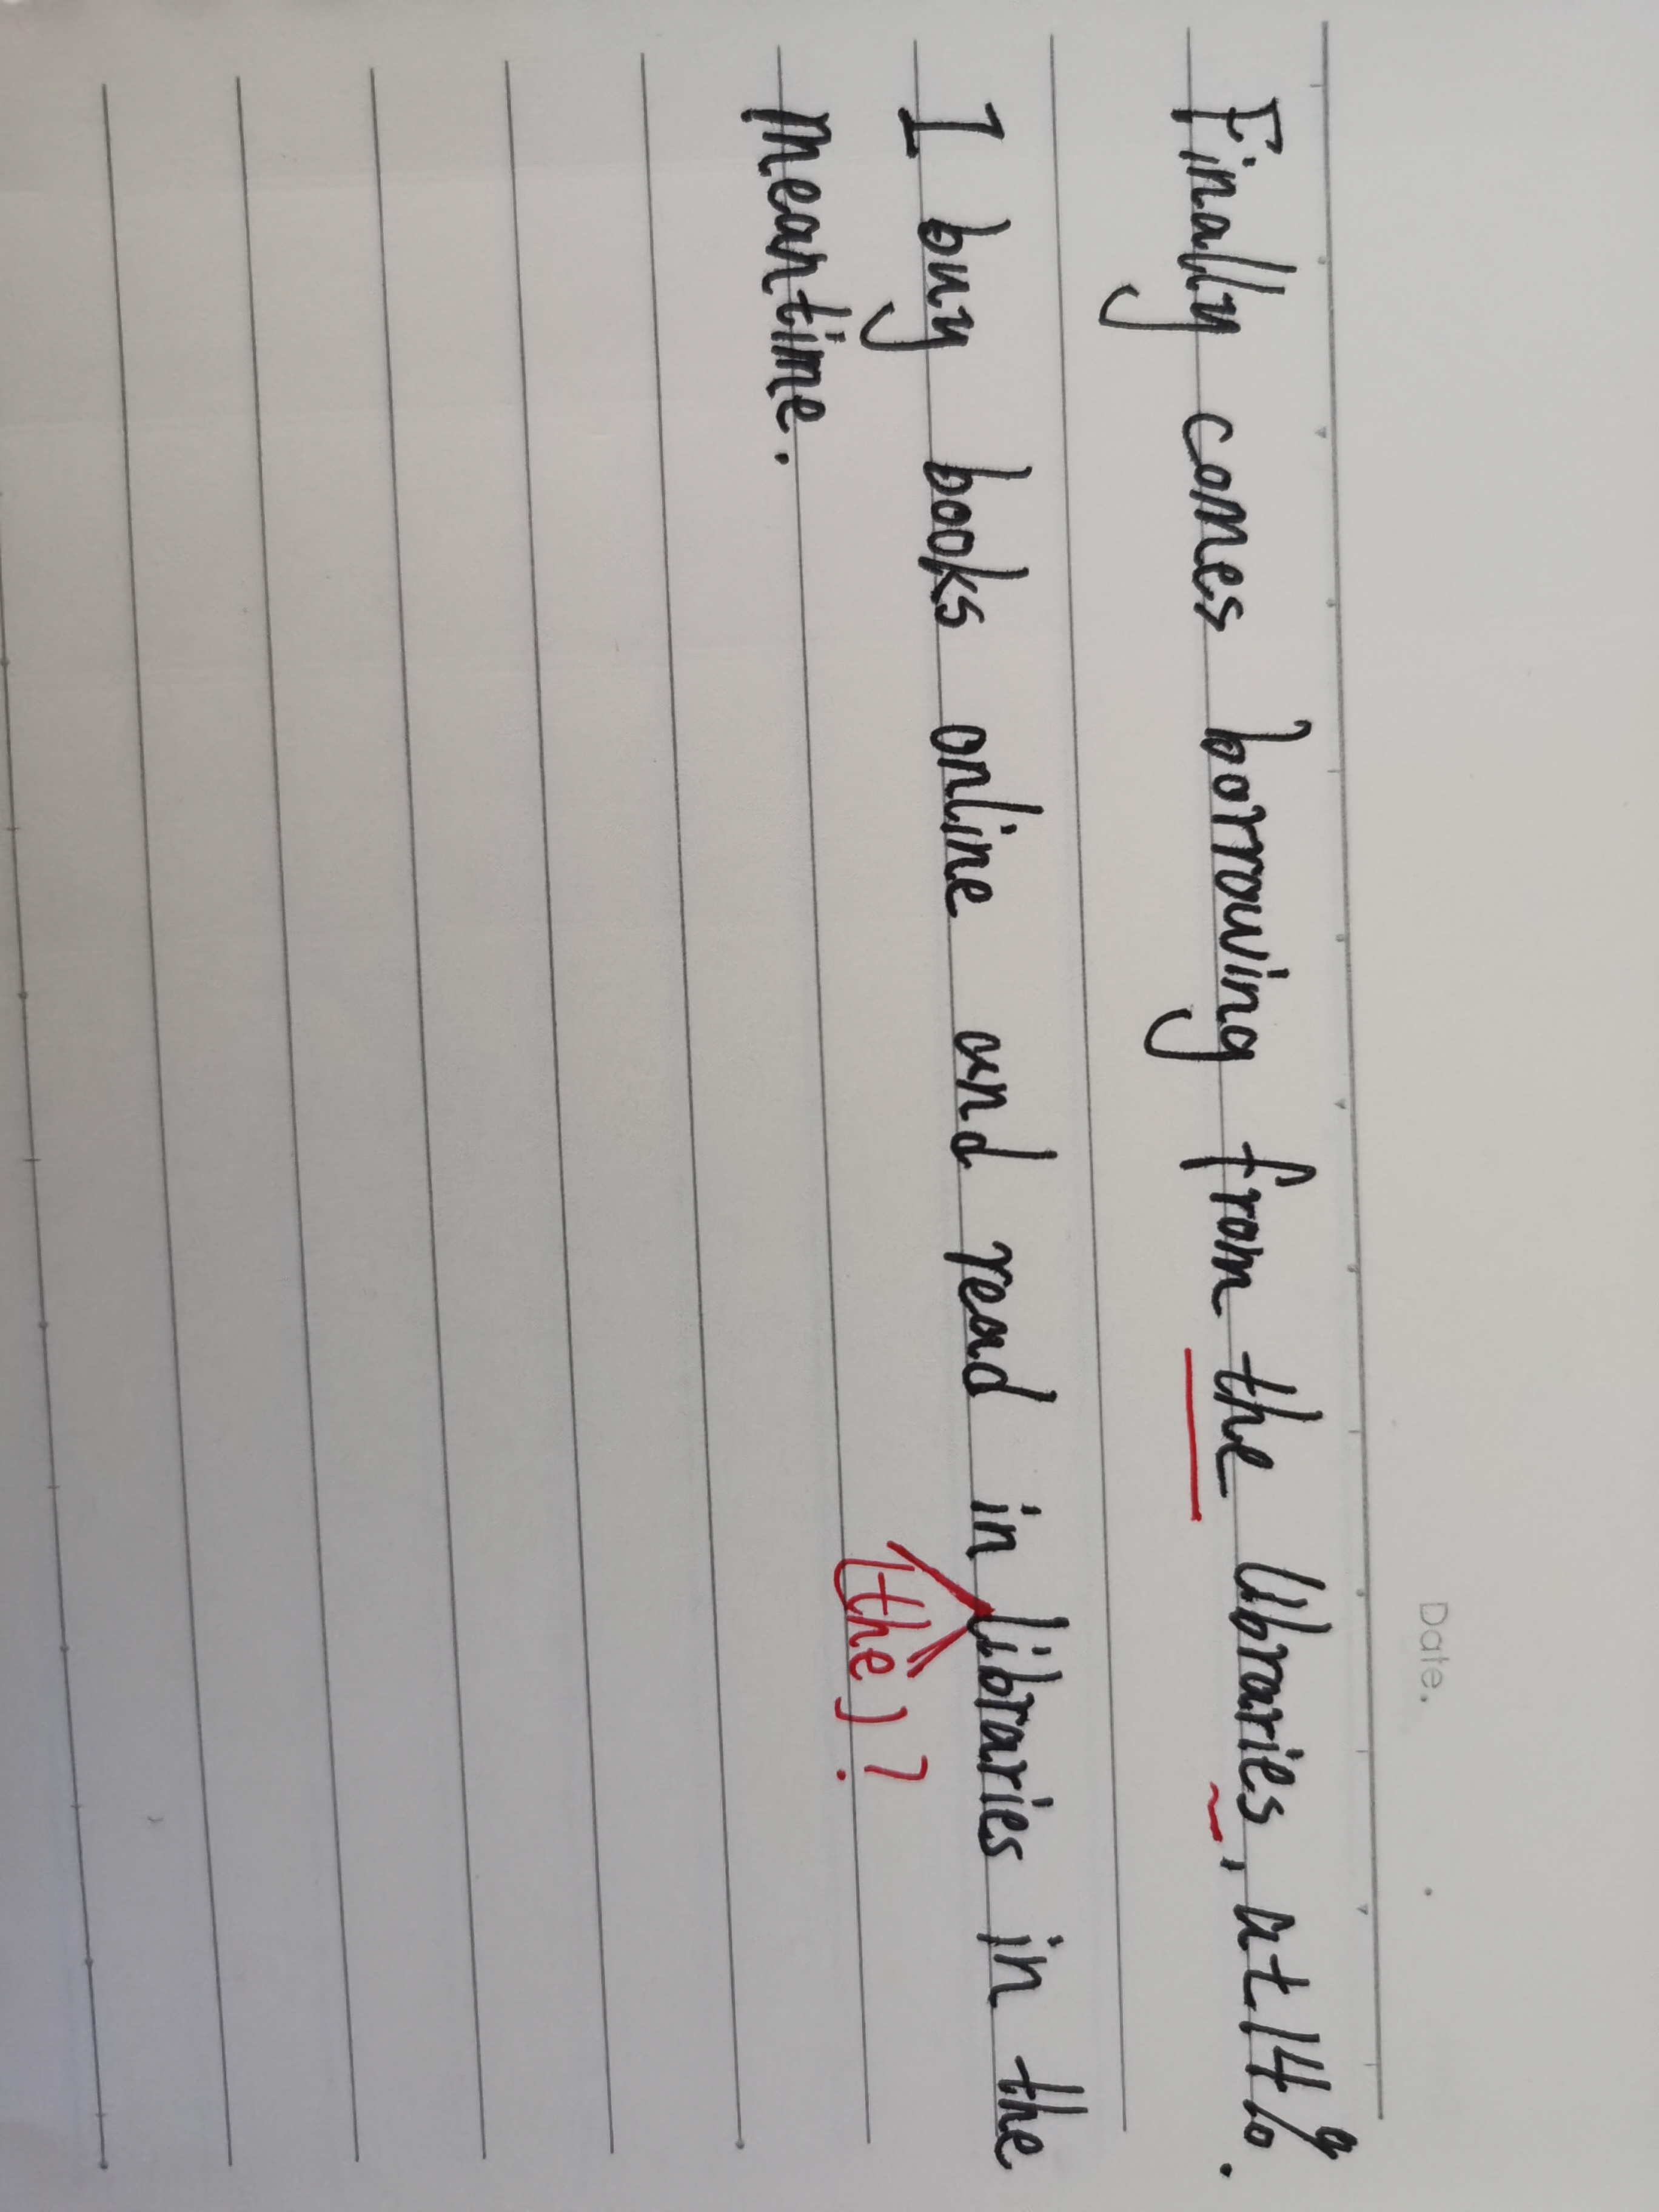 Date.
Finally comes borrowing from the libraries, at 14%.
I buy books online and read in libraries in the
(the)?
meantime.